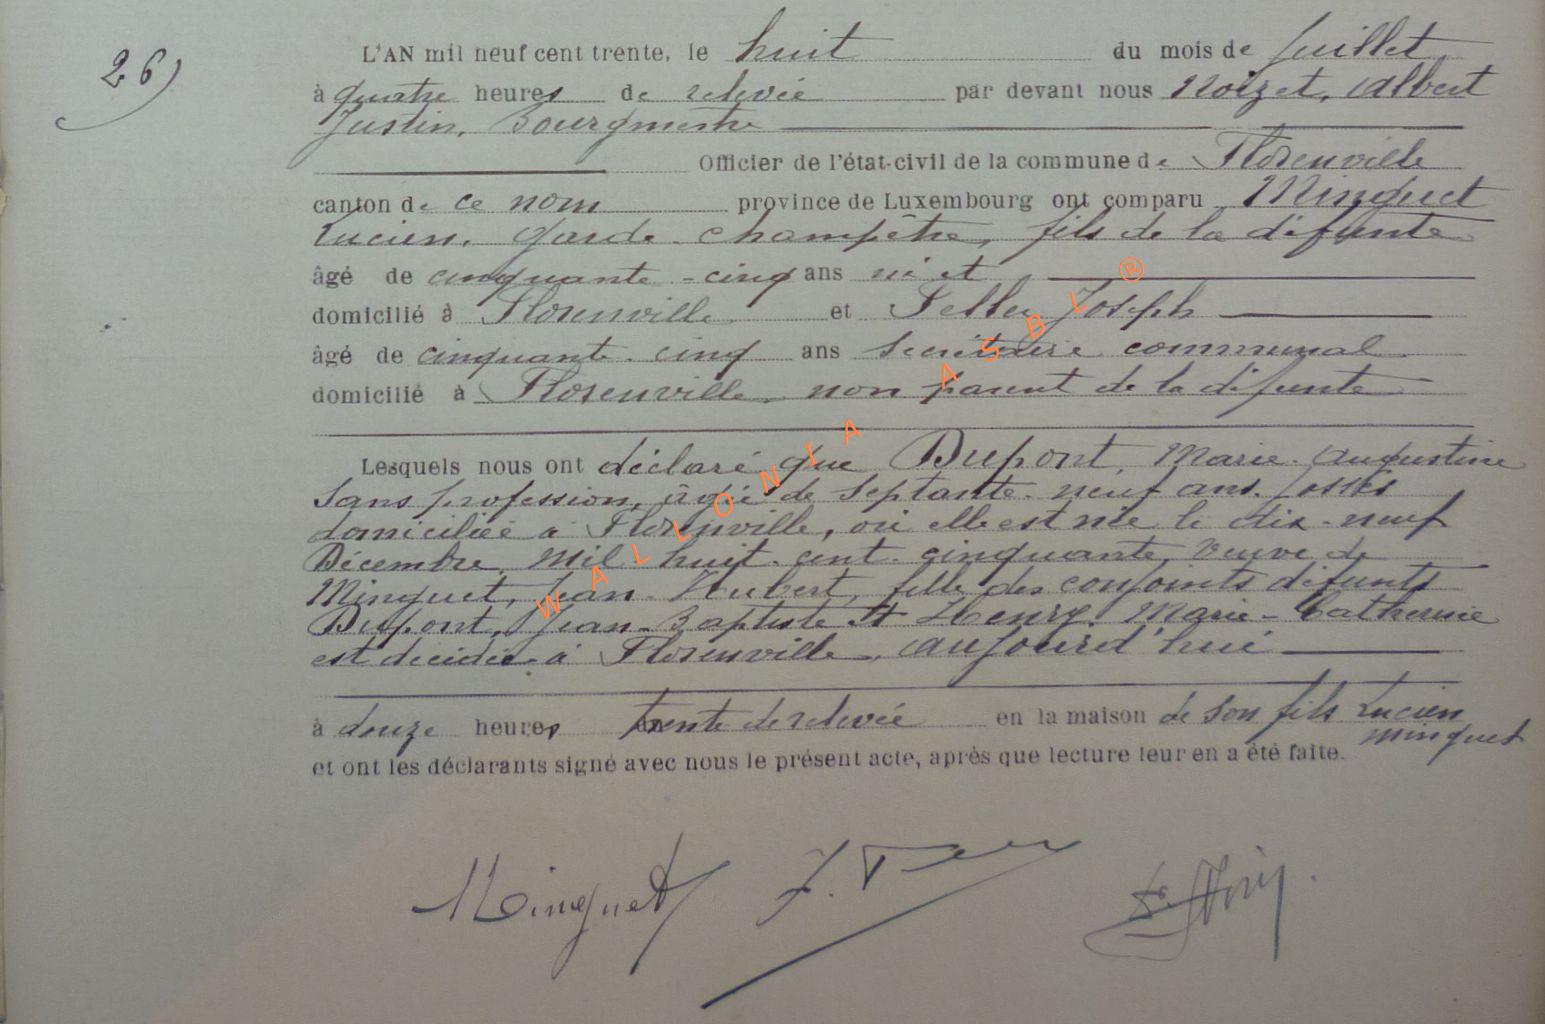 26)
L'AN mil neuf cent trente, le huit du mois de Juillet
à quatre heures de relevée par devant nous Noizet, Albert
Justin, Bourgmestre
Officier de l'état-civil de la commune de Florenville
canton de ce nom province de Luxembourg ont comparu Minguet
Lucien, garde-champêtre, fils de la défunte
âgé de cinquante-cinq ans né et
domicilié à Florenville et Feller Joseph
âgé de cinquante-cinq ans Secrétaire communal
domicilié à Florenville, non parent de la défunte
Lesquels nous ont déclaré que Dupont, Marie-Augustine
Sans profession, âgée de Septante-neuf ans
domiciliée à Florenville, où elle est née le dix-neuf
Décembre, mil-huit-cent-cinquante, Veuve de
Minguet, Jean-Hubert, fille des conjoints défunts
Dupont, Jean-Baptiste et Henry, Marie-Catherine
est décédée à Florenville, aujourd'hui
à douze heures trente de relevée en la maison de son fils Lucien
Minguet
et ont les déclarants signé avec nous le présent acte, après que lecture leur en a été faite.
Minguet
WALLONIA ASBL ®